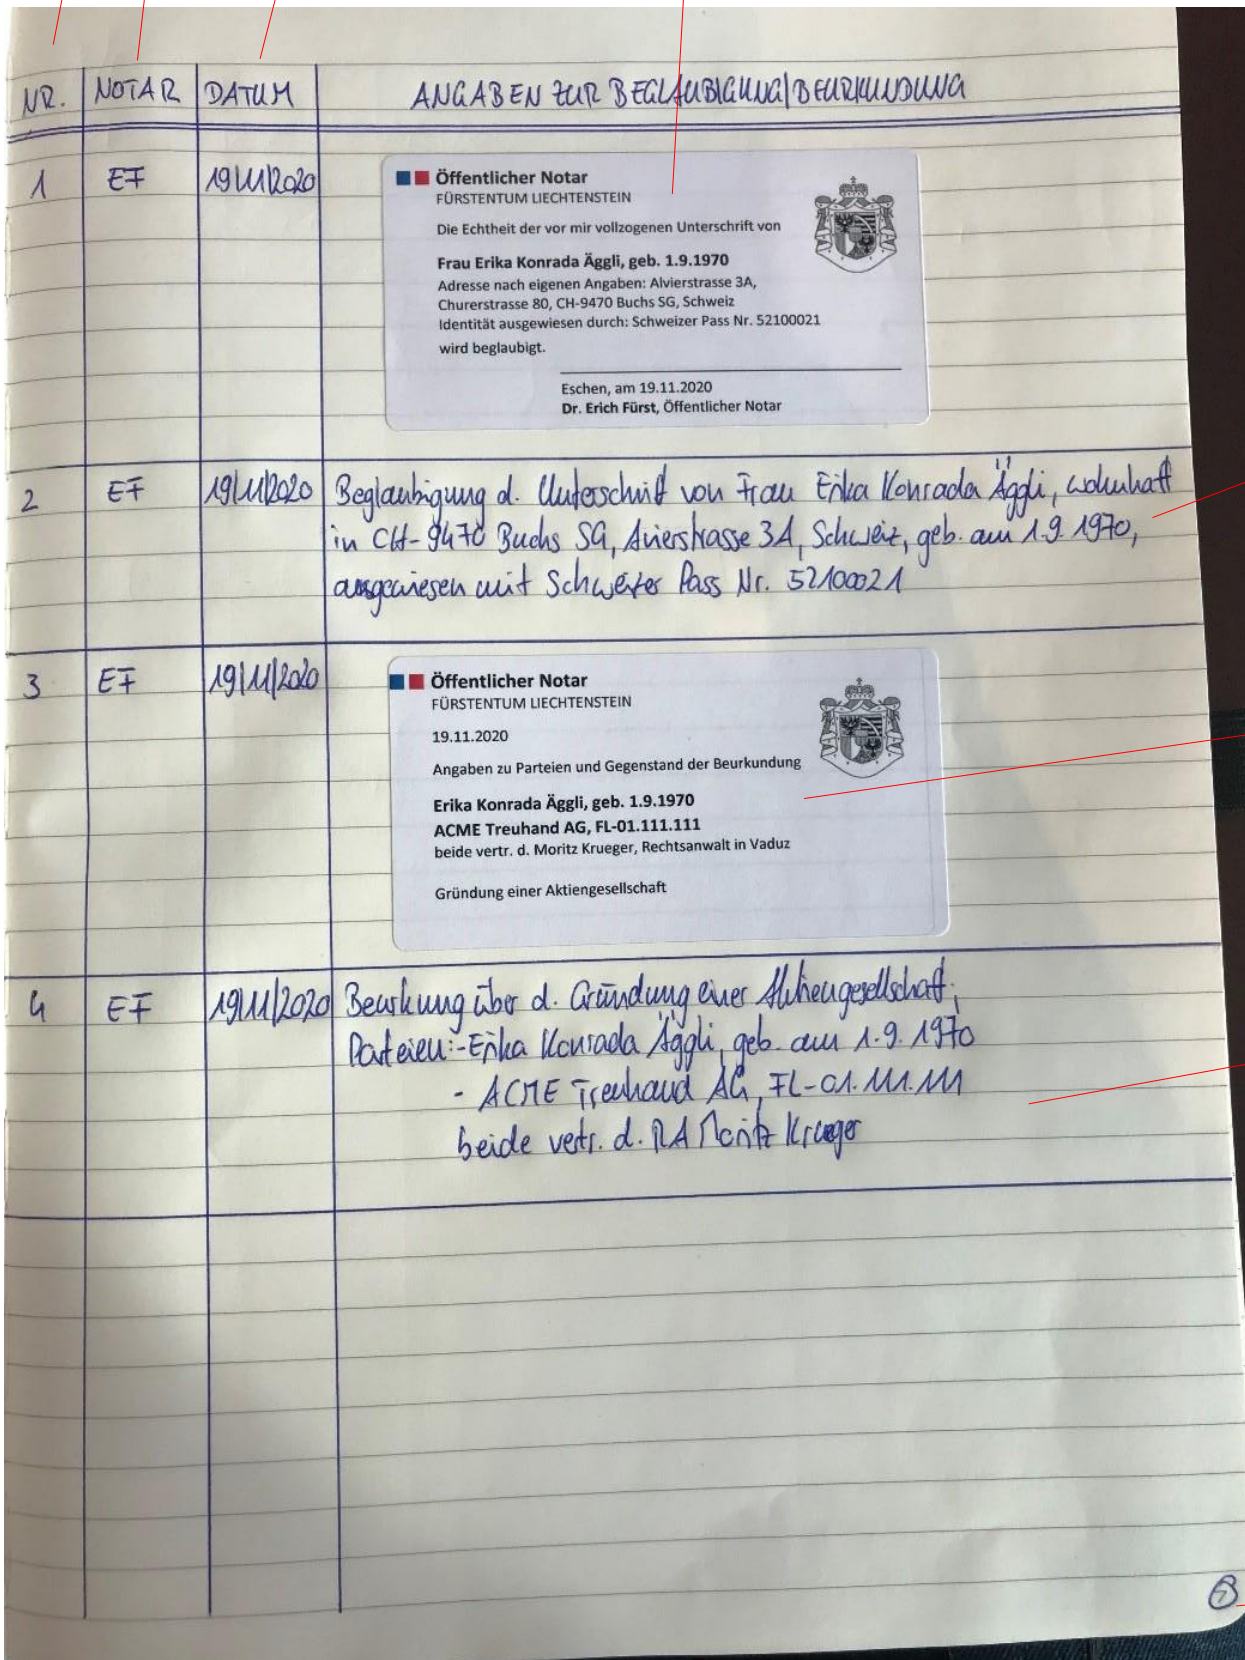 NR. NOTAR DATUM ANGABEN ZUR BEGLAUBIGUNG/BEURKUNDUNG
1 EF 19/11/2020
Öffentlicher Notar
FÜRSTENTUM LIECHTENSTEIN
Die Echtheit der vor mir vollzogenen Unterschrift von
Frau Erika Konrada Äggli, geb. 1.9.1970
Adresse nach eigenen Angaben: Alvierstrasse 3A,
Churerstrasse 80, CH-9470 Buchs SG, Schweiz
Identität ausgewiesen durch: Schweizer Pass Nr. 52100021
wird beglaubigt.
Eschen, am 19.11.2020
Dr. Erich Fürst, Öffentlicher Notar
2 EF 19/11/2020 Beglaubigung d. Unterschrift von Frau Erika Konrada Äggli, wohnhaft
in CH-9470 Buchs SG, Avierstrasse 3A, Schweiz, geb. am 1.9.1970,
ausgewiesen mit Schweizer Pass Nr. 52100021
3 EF 19/11/2020
Öffentlicher Notar
FÜRSTENTUM LIECHTENSTEIN
19.11.2020
Angaben zu Parteien und Gegenstand der Beurkundung
Erika Konrada Äggli, geb. 1.9.1970
ACME Treuhand AG, FL-01.111.111
beide vertr. d. Moritz Krueger, Rechtsanwalt in Vaduz
Gründung einer Aktiengesellschaft
4 EF 19/11/2020 Beurkung über d. Gründung einer Aktiengesellschaft;
Parteien:-Erika Konrada Äggli, geb. am 1.9.1970
- ACME Treuhand AG, FL-01.111.111
beide vertr. d. RA Moritz Krueger